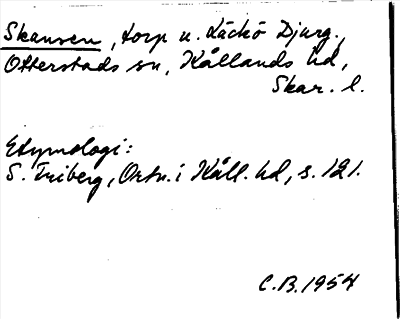 Skansen, torp u. Läckö Djurg.,
Otterstads sn, Kållands hd,
Skar. l.
Etymologi:
S. Friberg, Ortn. i Kåll. hd, s. 121.
C.B. 1954